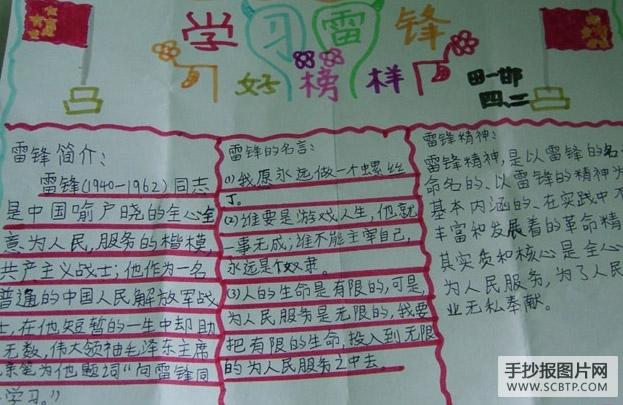 学习雷锋
好榜样
四、二
雷锋简介:
雷锋(1940-1962)同志
是中国喻户晓的全心全
意为人民,服务的楷模,
共产主义战士;他作为一名
普通的中国人民解放军战
士,在他短暂的一生中却助
无数,伟大领袖毛泽东主席
亲笔为他题词“向雷锋同
学习。”
雷锋的名言:
(1)我愿永远做一个螺丝
丁。
(2)谁要是游戏人生,他就
一事无成;谁不能主宰自己,
永远是个奴隶。
(3)人的生命是有限的,可是
为人民服务是无限的,我要
把有限的生命,投入到无限
的为人民服务之中去。
雷锋精神:
雷锋精神,是以雷锋的名
命名的、以雷锋的精神为
基本内涵的、在实践中不
丰富和发展着的革命精
其实质和核心是全心
为人民服务,为了人民
业无私奉献。
手抄报图片网
WWW.SCBTP.COM